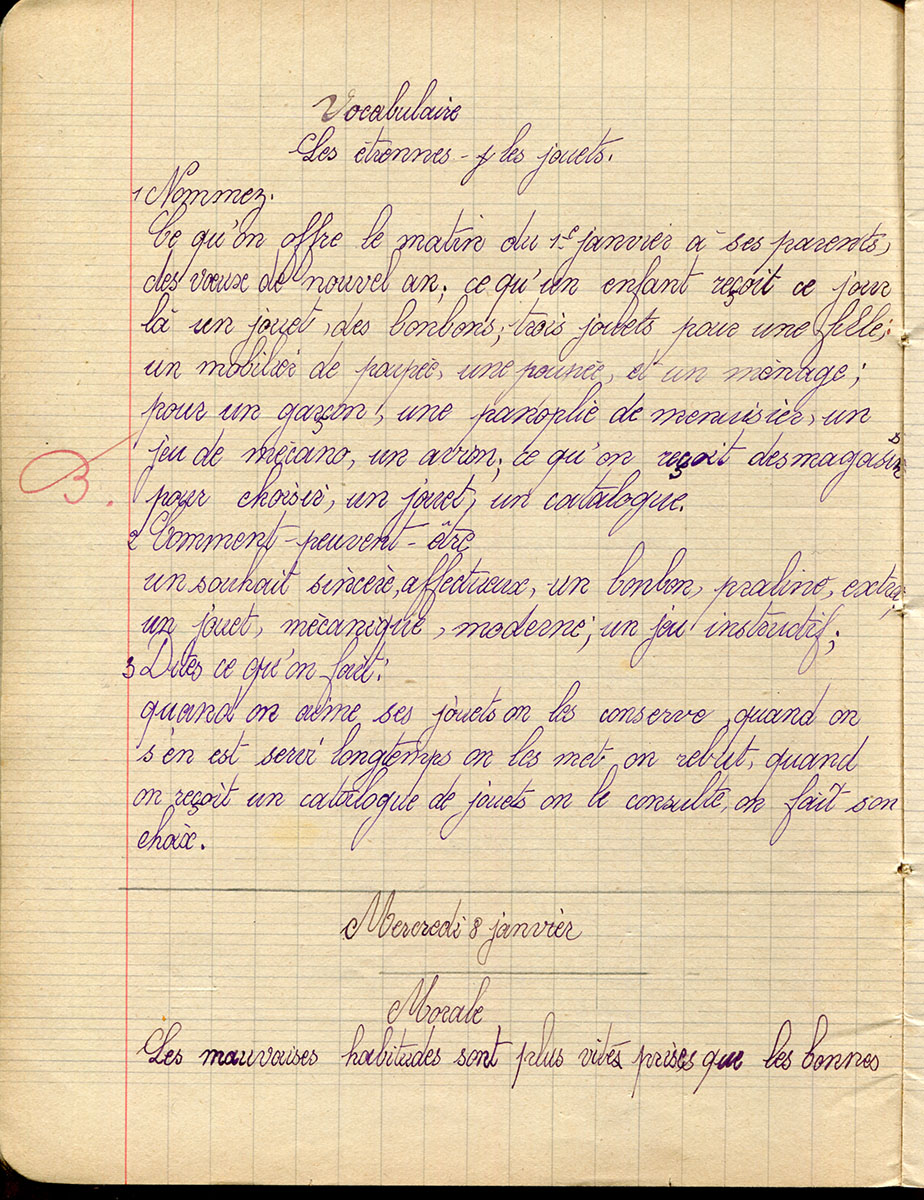 Vocabulaire
Les étrennes - & les jouets.
1 Nommez.
Ce qu'on offre le matin du 1er janvier à ses parents,
des vœux de nouvel an; ce qu'un enfant reçoit ce jour
là un jouet, des bonbons; trois jouets pour une fille;
un mobilier de poupée, une poupée, et un ménage;
pour un garçon, une panoplie de menuisier, un
jeu de mécano, un avion; ce qu'on reçoit des magasins
B.
pour choisir, un jouet, un catalogue.
2 Comment-peuvent-être
un souhait sincère, affectueux, un bonbon, praliné, extra,
un jouet, mécanique, moderne; un jeu instructif;
3 Dites ce qu'on fait:
quand on aime ses jouets on les conserve, quand on
s'en est servi longtemps on les met on rebut, quand
on reçoit un catalogue de jouets on le consulte, on fait son
choix.
Mercredi 8 janvier
Morale
Les mauvaises habitudes sont plus vites prises que les bonnes